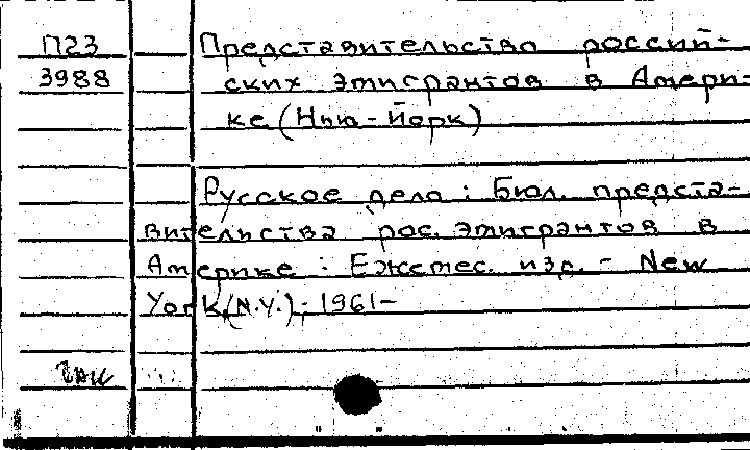 П23
3988
Представительство россий-
ских эмигрантов в Амери-
ке (Нью-Йорк)
Русское дело: Бюл. предста-
вительства рос. эмигрантов в
Америке: Ежемес. изд. - New
York (N.Y.), 1961-